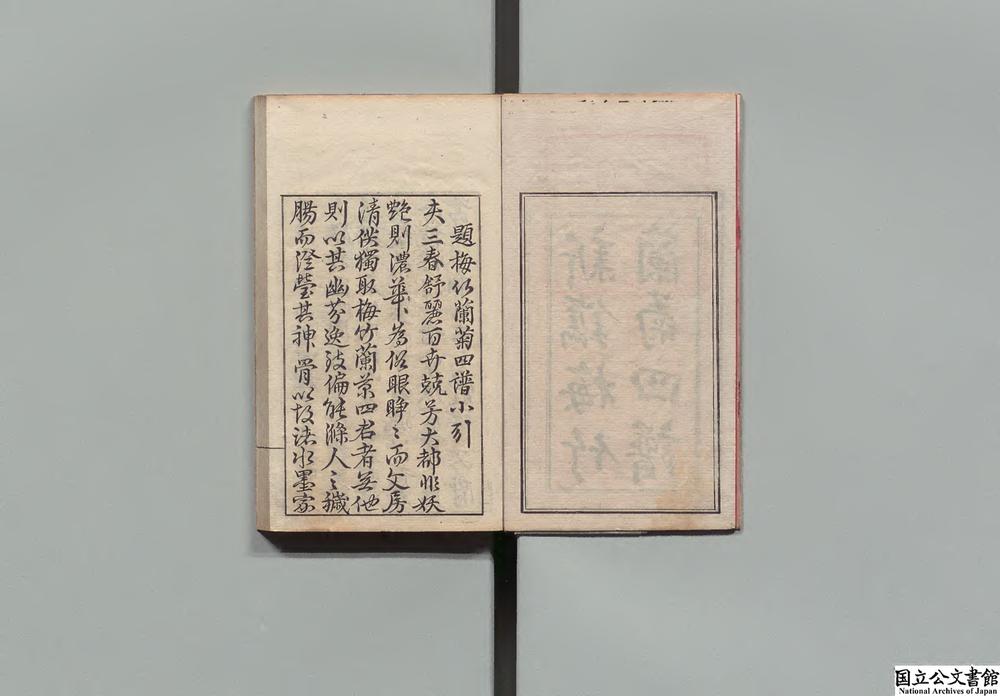 新鐫梅竹
蘭菊四譜
題梅竹蘭菊四譜小引
夫三春舒麗百卉競芳大都非妖
艷則濃華為俗眼睜〻而文房
清供獨取梅竹蘭菊四君者無他
則以其幽芬逸致偏能滌人之穢
腸而澄瑩其神骨以故法水墨家
国立公文書館
National Archives of Japan